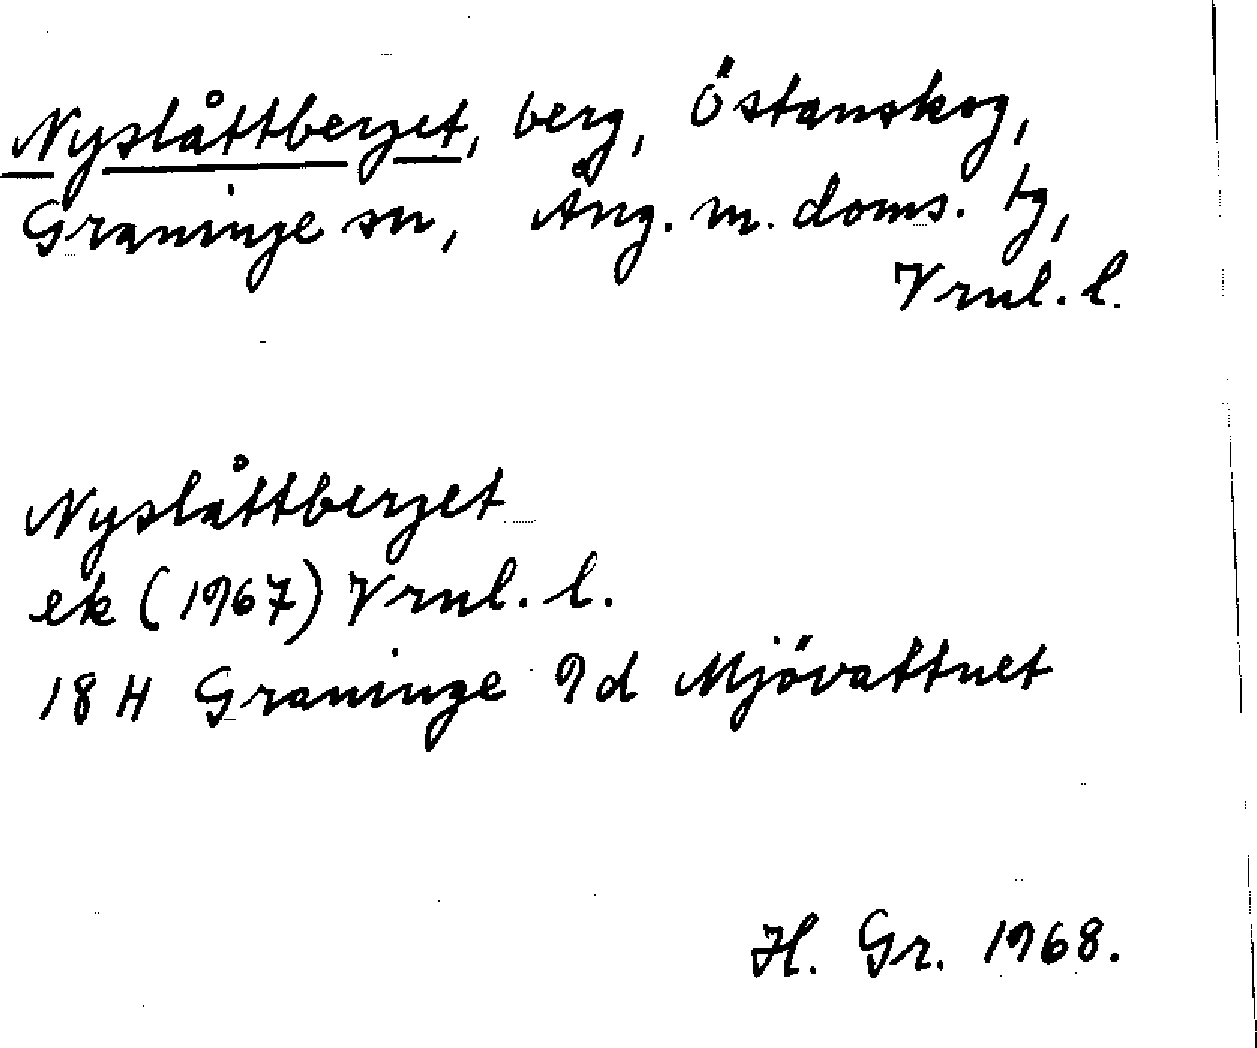 Nyslåttberget, berg, Östanskog,
Graninge sn, Ång. m. doms. tg,
Vrnl. l.
Nyslåttberget
ek (1967) Vrnl. l.
18 H Graninge 9d Mjövattnet
H. Gr. 1968.